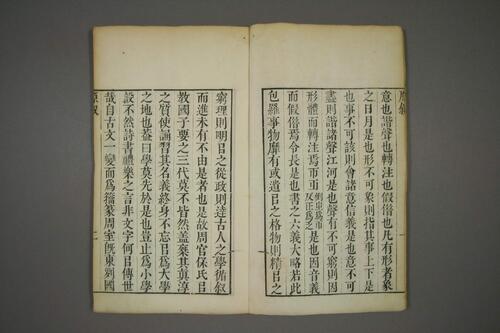 原敘
意也諧聲也轉注也假俗也凡有形者象
之日月是也形不可象則指其事上下是
也事不可該則會諸意信義是也意不可
盡則諧諸聲江河是也聲有不可窮則因
形體而轉注焉帀𠀔反正爲之是也因音義
而假俗焉令長是也書之六義大略若此
包羅事物靡有或遺㠯之格物則精㠯之
窮理則明㠯之從政則達古人之學循敘
而進未有不由是者也是故周官保氏㠯
教國子要之三代莫不皆然蓋葉其蒖淳
之質使誦習其名義終身不忘㠯爲大學
之地也蓋曰學莫先於是也豈止爲小學
設不然詩書禮樂之言非文字何㠯傳世
哉自古文一變而爲籒篆周室旣東列國
原敘
二